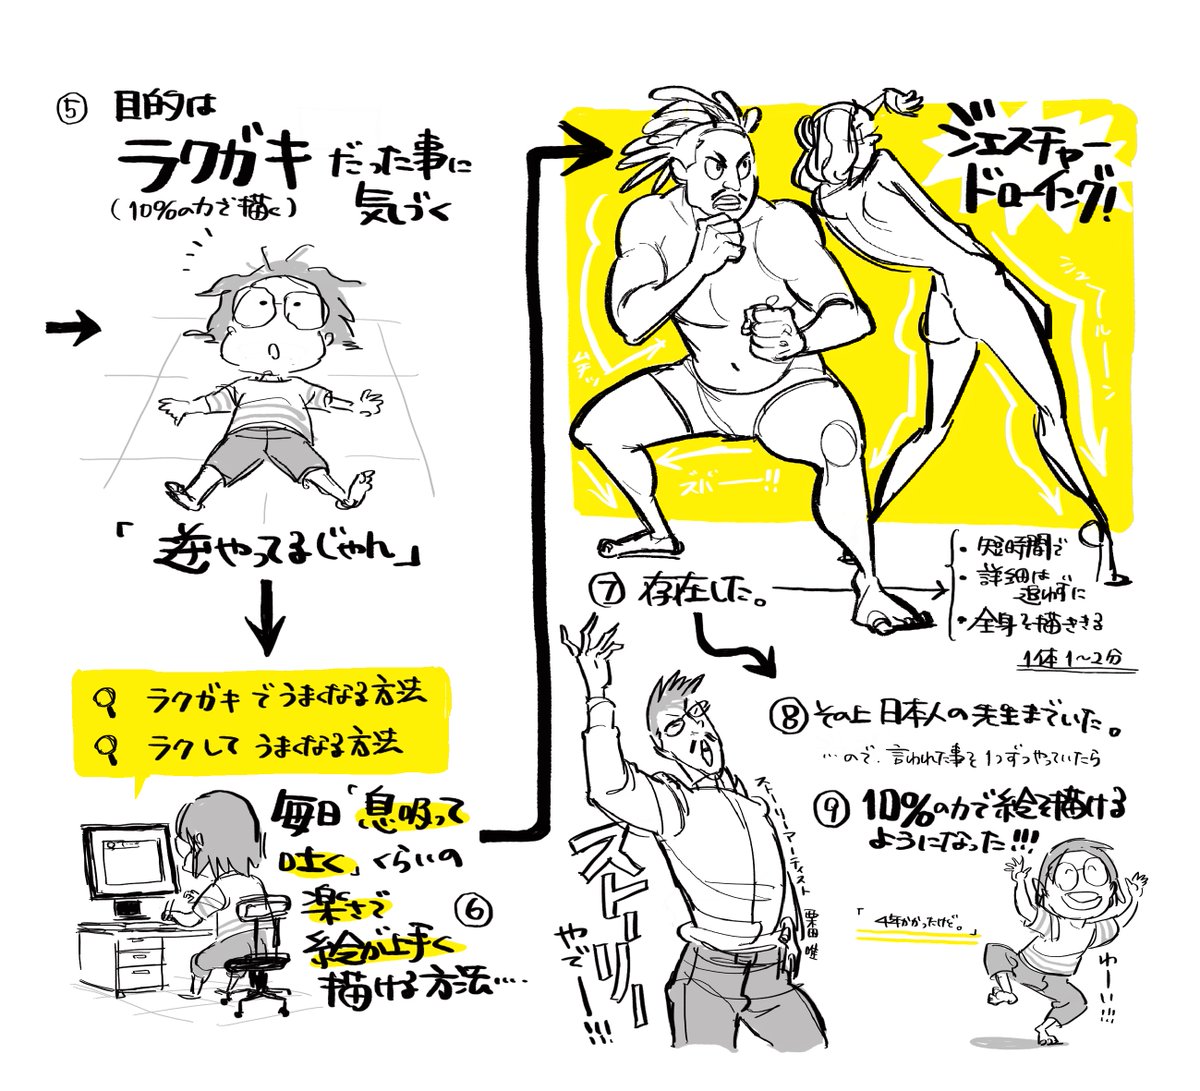 ⑤ 目的は
ラクガキだった事に
(10%の力で描く) 気づく
「逆やってるじゃん」
ラクガキでうまくなる方法
ラクしてうまくなる方法
毎日「息吸って
吐く」くらいの
楽さで ⑥
絵が上手く
描ける方法….
ジェスチャー
ドローイング!
ムチッ
ズバーー!!
シュールーーン
⑦ 存在した。
・短時間で
・詳細は
追わずに
・全身を描ききる
1体1〜2分
⑧ その上 日本人の先生までいた。
…ので、言われた事を1つずつやっていたら
⑨ 10%の力で絵を描ける
ようになった!!!
「4年かかったけど。」
わーい!!!
ストーリーアーティスト
栗田 唯
ストーリー
やでー!!!